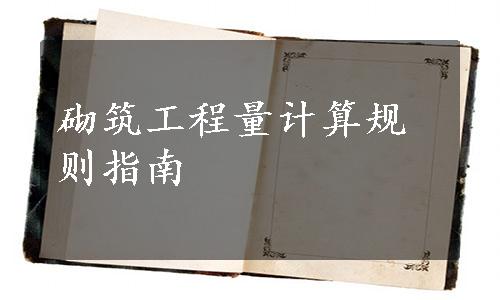 砌筑工程量计算规
则指南